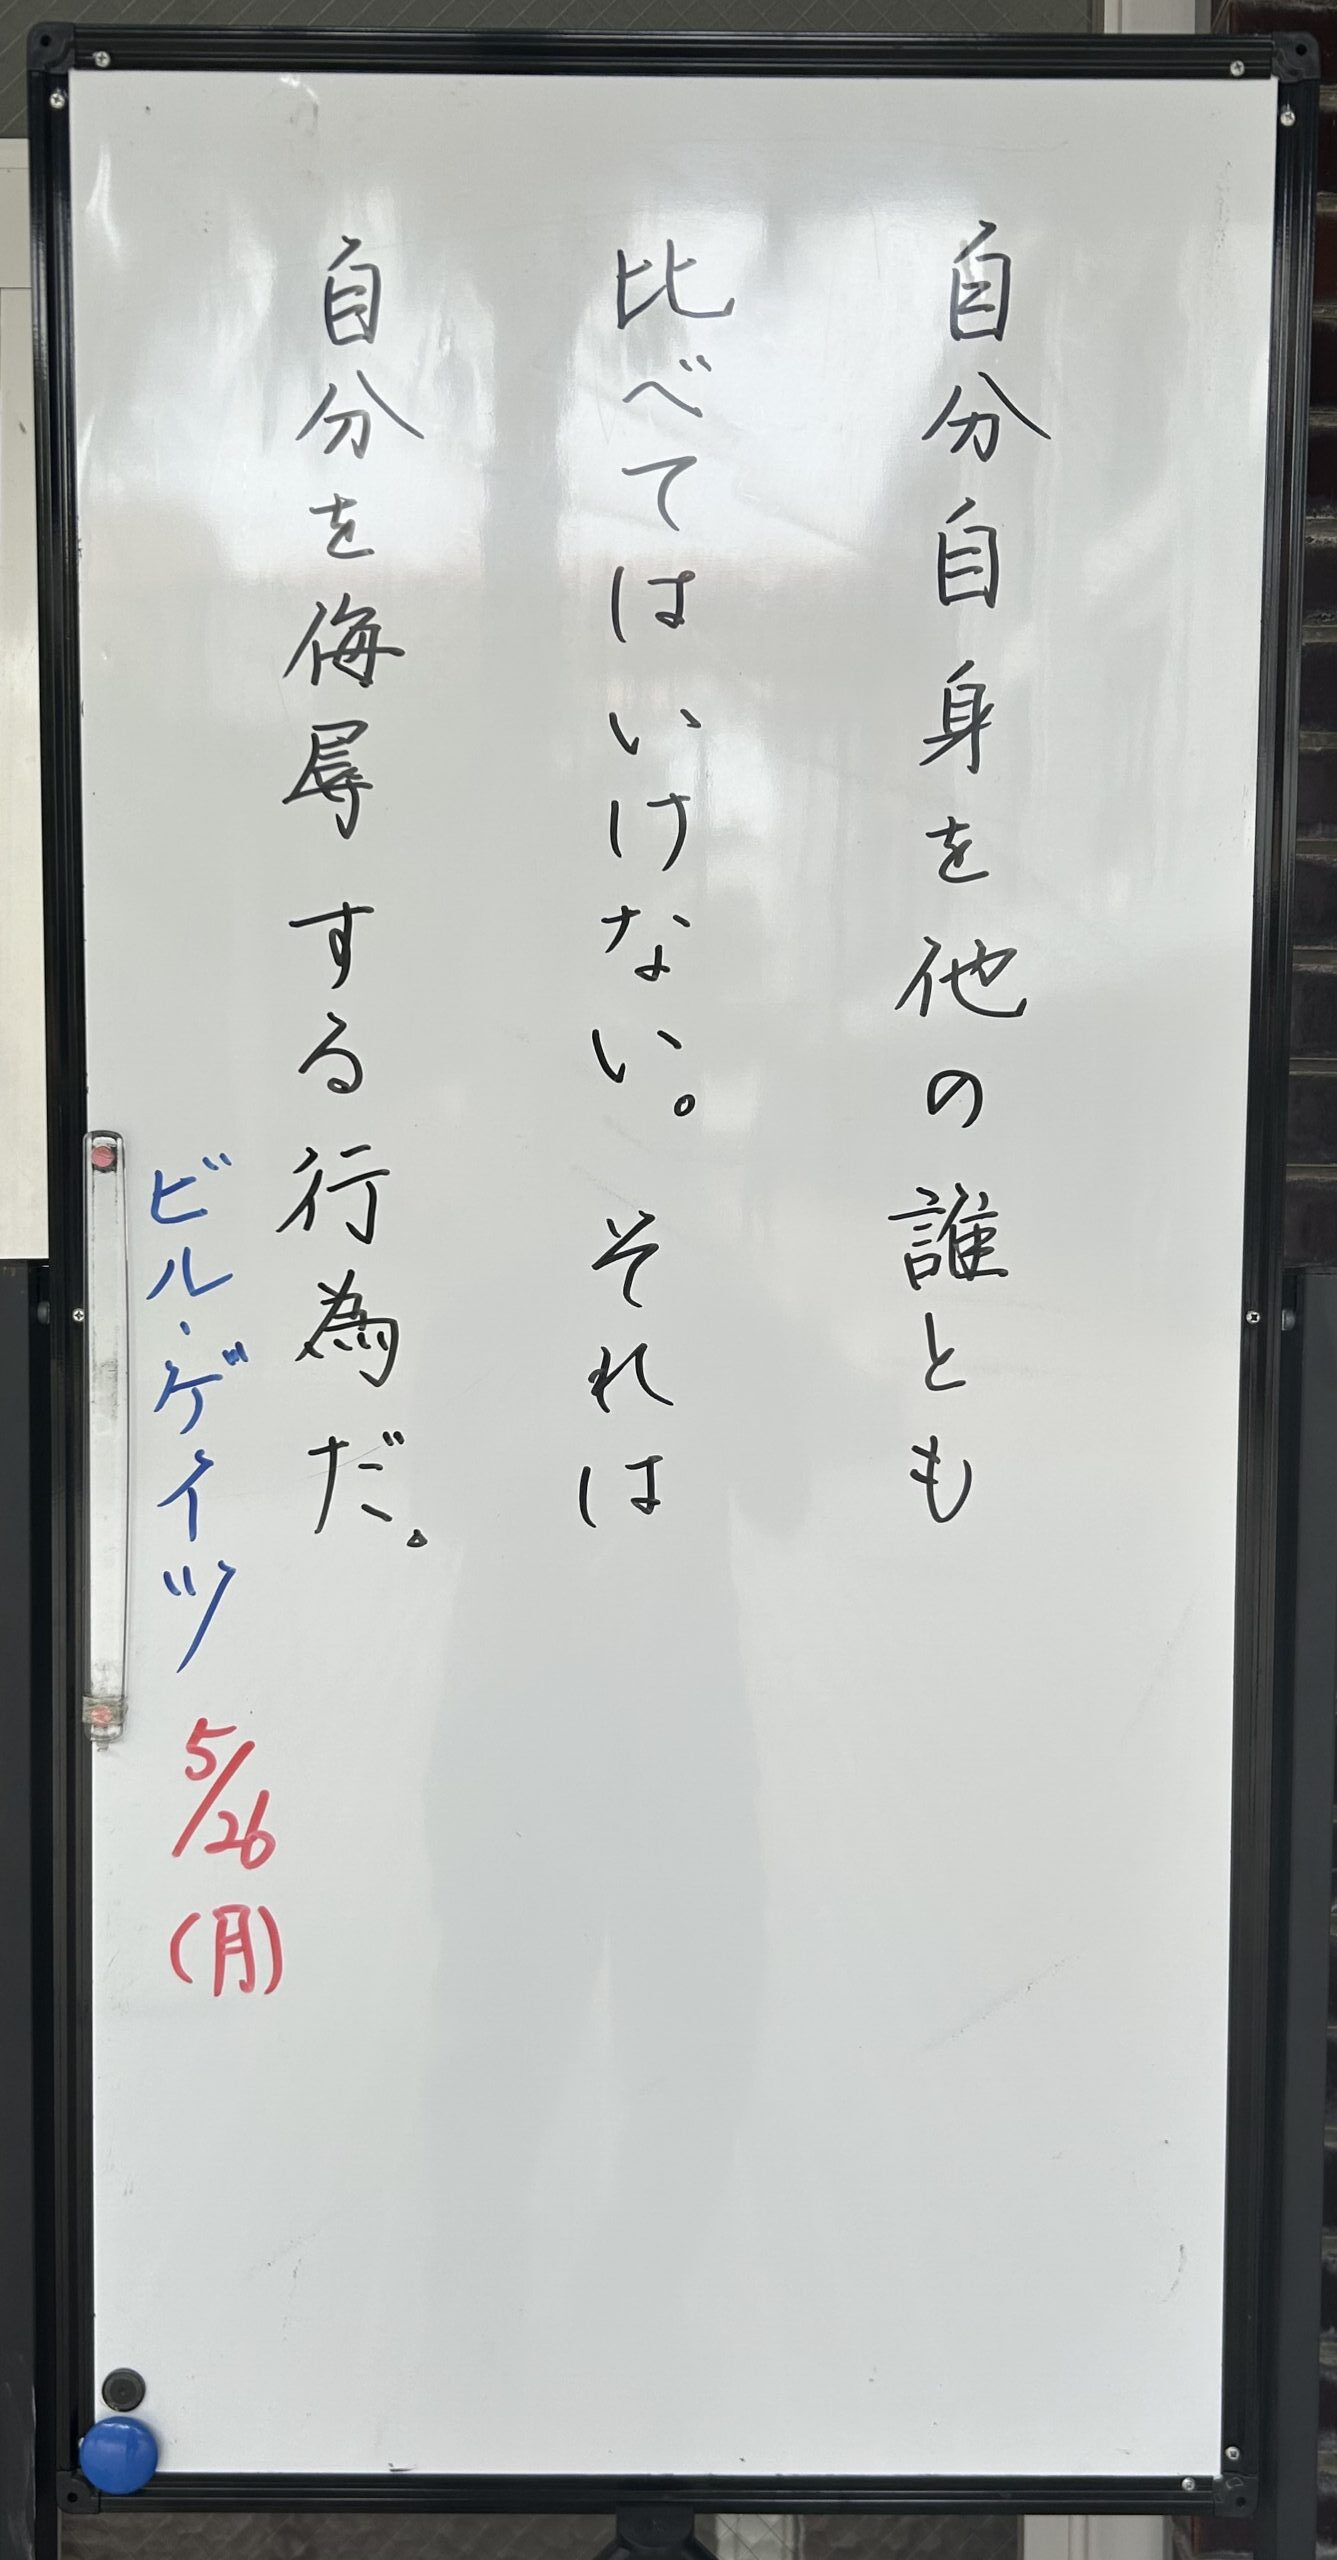 自分自身を他の誰とも
比べてはいけない。それは
自分を侮辱する行為だ。
ビル・ゲイツ 5/26(月)